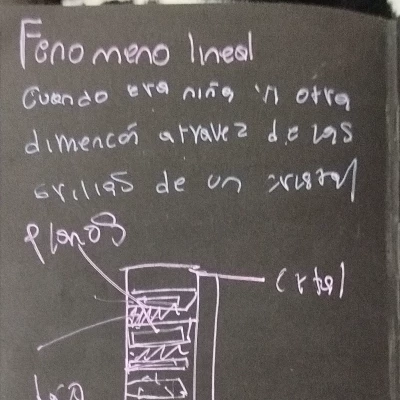 Fenomeno lineal
Cuando era niña vi otra
dimencón atravez de las
orillas de un cristal
planos